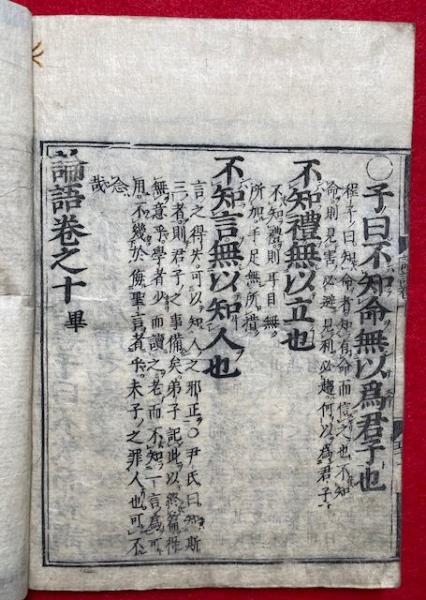 〇子曰不知命無以爲君子也
程子曰知命者知有命而信之也不知
命則見害必避見利必趨何以爲君子
不知禮無以立也
不知禮則耳目無
所加手足無所措
不知言無以知人也
言之得失可以知人之邪正〇尹氏曰知斯
三者則君子之事備矣弟子記此以終篇得
無意乎學者少而讀之老而不知一言爲可
用不幾於侮聖言者乎夫子之罪人也可不
念哉
論語卷之十 畢